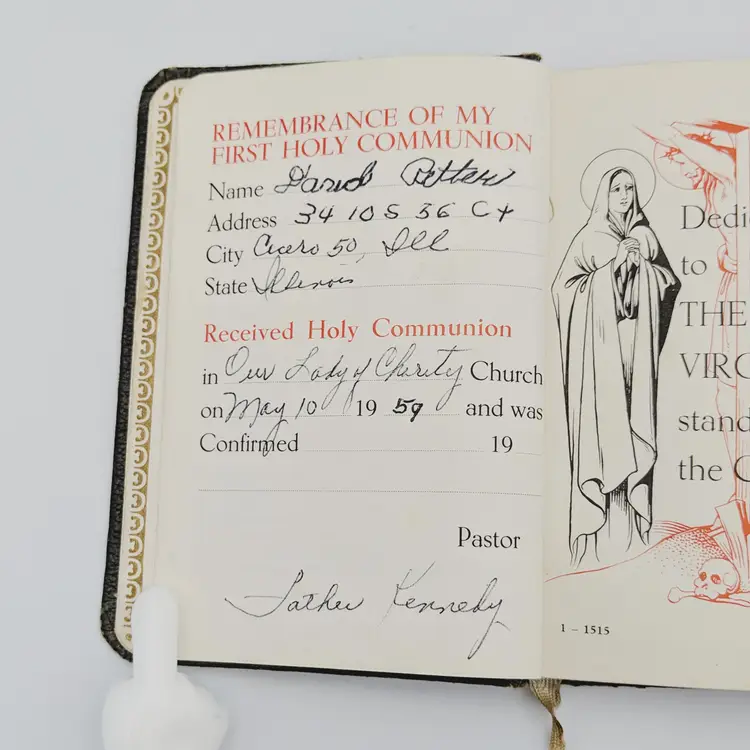 REMEMBRANCE OF MY
FIRST HOLY COMMUNION
Name David
Address 3410 S 56 Ct
City Cicero 50, Ill
State Illinois
Received Holy Communion
in Our Lady of Charity Church
on May 10 19 59 and was
Confirmed 19
Pastor
Father Kennedy
Dedi
to
THE
VIRG
stand
the C
1 – 1515